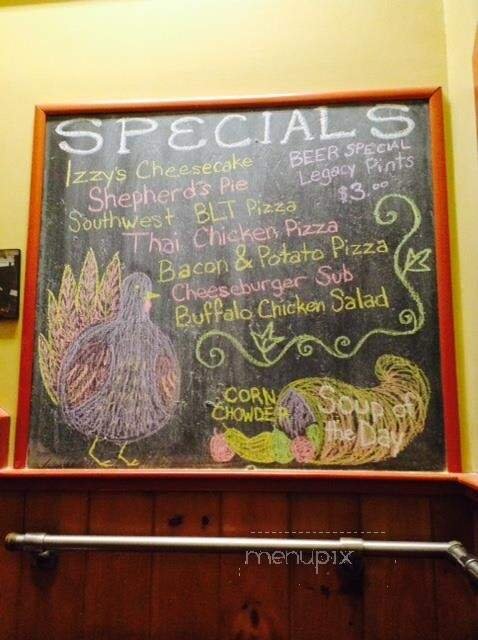 SPECIALS
Izzy's Cheesecake
Shepherd's Pie
Southwest BLT Pizza
Thai Chicken Pizza
Bacon & Potato Pizza
Cheeseburger Sub
Buffalo Chicken Salad
BEER SPECIAL
Legacy Pints
$3.00
CORN
CHOWDER
Soup of
the Day
menupix